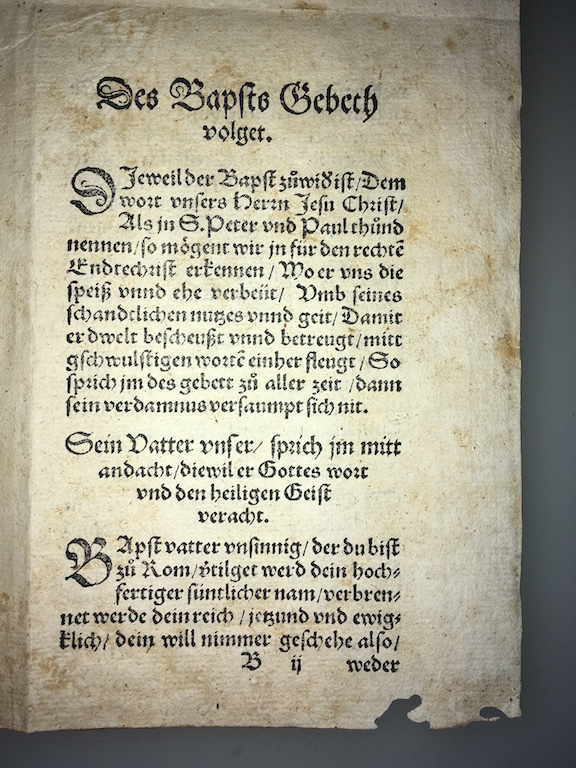 Des Bapsts Gebeth
volget.
DJeweil der Bapst zůwid ist/Dem
wort vnsers Herrn Jesu Christ/
Als jn S. Peter vnd Paul thůnd
nennen/so mögent wir jn für den rechtē
Endtechrist erkennen/Wo er vns die
speiß vnnd ehe verbeüt/ Vmb seines
schandtlichen nutzes vnnd geit/Damit
er dwelt bescheußt vnnd betreugt/mitt
gschwulstigen wortē einher fleugt/So
sprich jm des gebett zů aller zeit/dann
sein verdamnus versaumpt sich nit.
Sein Vatter vnser/ sprich jm mitt
andacht/diewil er Gottes wort
vnd den heiligen Geist
veracht.
BApst vatter vnsinnig/der du bist
zů Rom/v̄tilget werd dein hoch⸗
fertiger süntlicher nam/verbren⸗
net werde dein reich/jetzund vnd ewig⸗
klich/ dein will nimmer geschehe also/
B ij weder